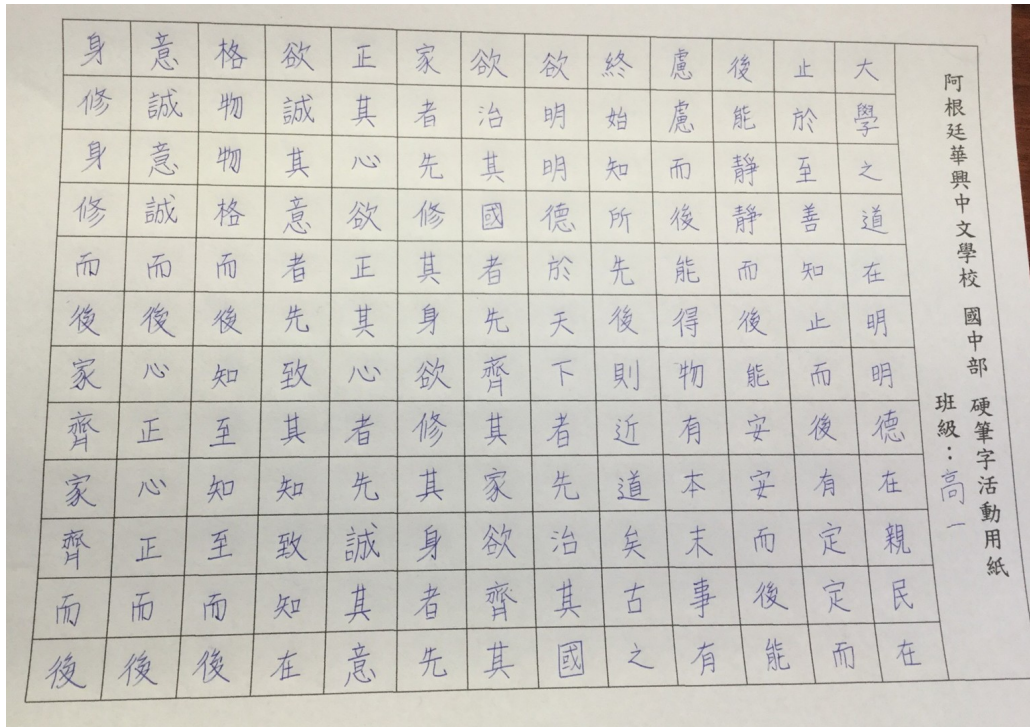 阿根廷華興中文學校 國中部 硬筆字活動用紙
班級：高一
大學之道在明明德在親民在
止於至善知止而後有定定而
後能靜靜而後能安安而後能
慮慮而後能得物有本末事有
終始知所先後則近道矣古之
欲明明德於天下者先治其國
欲治其國者先齊其家欲齊其
家者先修其身欲修其身者先
正其心欲正其心者先誠其意
欲誠其意者先致其知致知在
格物物格而後知至知至而後
意誠意誠而後心正心正而後
身修身修而後家齊家齊而後